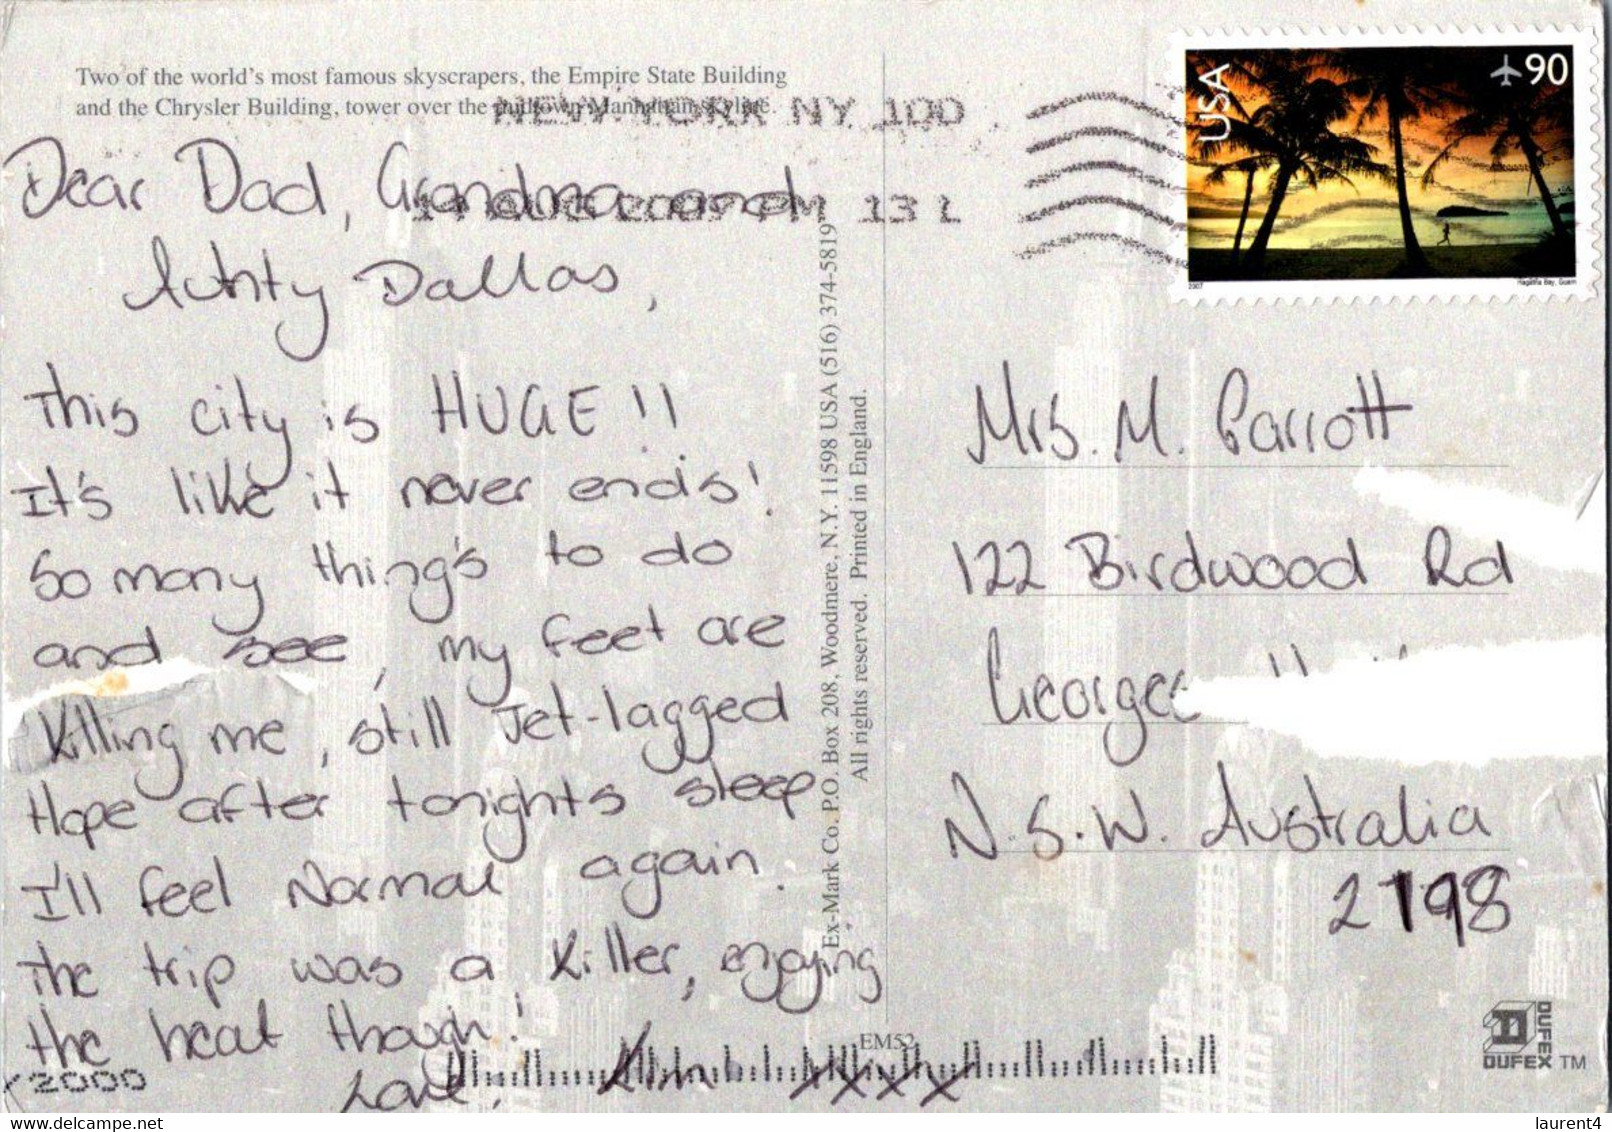 Two of the world's most famous skyscrapers, the Empire State Building
and the Chrysler Building, tower over the midtown Manhattan skyline.
NEW YORK NY 100
AUG 2009 PM 13 L
USA
90
2007
Hagåtña Bay, Guam
Dear Dad, Grandma and
Aunty Dallas,
This city is HUGE!!
It's like it never ends!
So many thing's to do
and see, my feet are
Killing me, still Jet-lagged
Hope after tonights sleep
I'll feel Normal again.
The trip was a Killer, enjoying
the heat though!
Love, Kim xxxx
Ex-Mark Co. P.O. Box 208, Woodmere, N.Y. 11598 USA (516) 374-5819
All rights reserved. Printed in England.
Mrs. M. Parrott
122 Birdwood Rd
Georges
N.S.W. Australia
2198
EM52
DUFEX
DUFEX TM
/2000
www.delcampe.net
laurent4